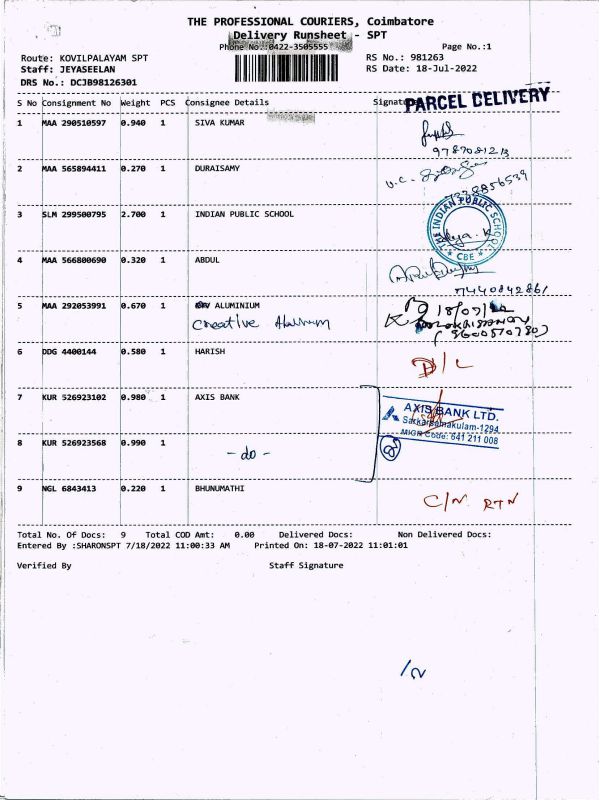 THE PROFESSIONAL COURIERS, Coimbatore
Delivery Runsheet - SPT
Phone No.:0422-3505555 Page No.:1
Route: KOVILPALAYAM SPT RS No.: 981263
Staff: JEYASEELAN RS Date: 18-Jul-2022
DRS No.: DCJB98126301
S No Consignment No Weight PCS Consignee Details Signature
PARCEL DELIVERY
1 MAA 290510597 0.940 1 SIVA KUMAR
2 MAA 565894411 0.270 1 DURAISAMY
3 SLM 299500795 2.700 1 INDIAN PUBLIC SCHOOL
THE INDIAN PUBLIC SCHOOL
* CBE *
4 MAA 566800690 0.320 1 ABDUL
5 MAA 292053991 0.670 1 ALUMINIUM
Creative
6 DDG 4400144 0.580 1 HARISH D/L
7 KUR 526923102 0.980 1 AXIS BANK
AXIS BANK LTD.
Sarkarsamakulam-1294
MICR Code: 641 211 008
8 KUR 526923568 0.990 1 - do -
9 NGL 6843413 0.220 1 BHUNUMATHI C/N RTN
Total No. Of Docs: 9 Total COD Amt: 0.00 Delivered Docs: Non Delivered Docs:
Entered By :SHARONSPT 7/18/2022 11:00:33 AM Printed On: 18-07-2022 11:01:01
Verified By Staff Signature